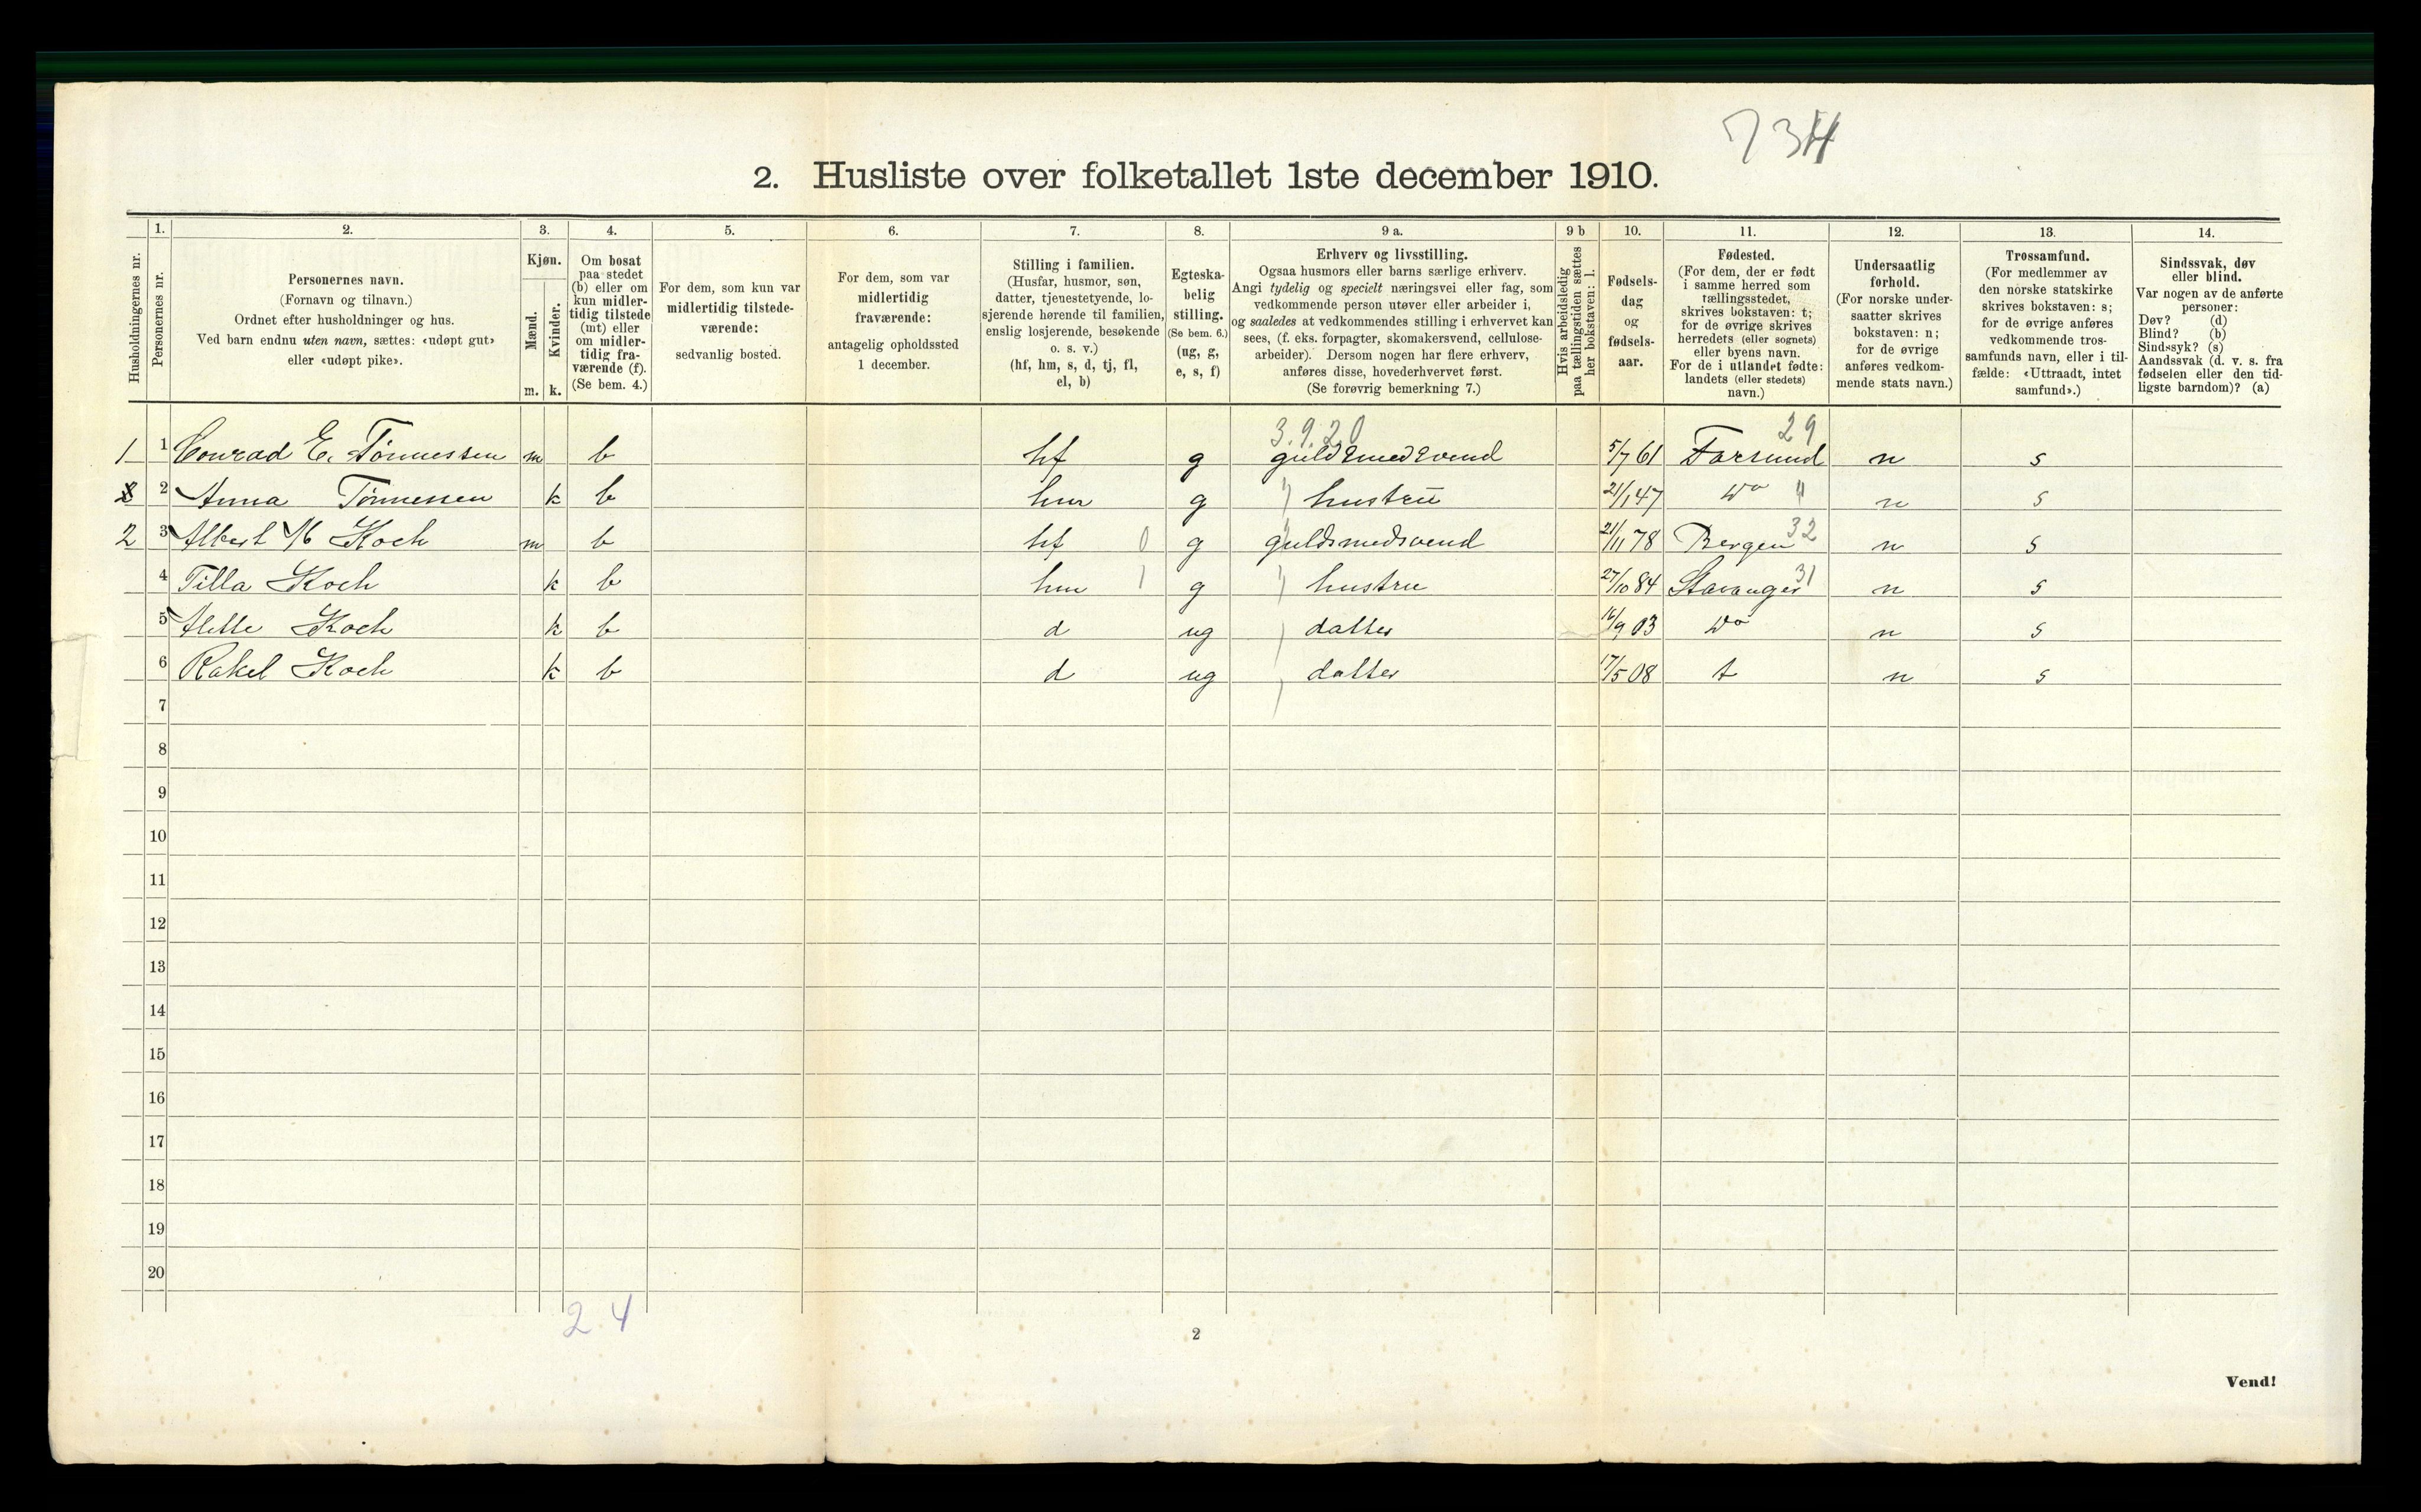 734
2. Husliste over folketallet 1ste december 1910.
Husholdningernes nr.
1.
Personernes nr.
2.
Personernes navn.
(Fornavn og tilnavn.)
Ordnet efter husholdninger og hus.
Ved barn endnu uten navn, sættes: «udøpt gut»
eller «udøpt pike».
3.
Kjøn.
Mænd.
Kvinder.
m. k.
4.
Om bosat
paa stedet
(b) eller om
kun midler-
tidig tilstede
(mt) eller
om midler-
tidig fra-
værende (f).
(Se bem. 4.)
5.
For dem, som kun var
midlertidig tilstede-
værende:
sedvanlig bosted.
6.
For dem, som var
midlertidig
fraværende:
antagelig opholdssted
1 december.
7.
Stilling i familien.
(Husfar, husmor, søn,
datter, tjenestetyende, lo-
sjerende hørende til familien,
enslig losjerende, besøkende
o. s. v.)
(hf, hm, s, d, tj, fl,
el, b)
8.
Egteska-
belig
stilling.
(Se bem. 6.)
(ug, g,
e, s, f)
9 a.
Erhverv og livsstilling.
Ogsaa husmors eller barns særlige erhverv.
Angi tydelig og specielt næringsvei eller fag, som
vedkommende person utøver eller arbeider i,
og saaledes at vedkommendes stilling i erhvervet kan
sees, (f. eks. forpagter, skomakersvend, cellulose-
arbeider). Dersom nogen har flere erhverv,
anføres disse, hovederhvervet først.
(Se forøvrig bemerkning 7.)
9 b
Hvis arbeidsledig
paa tællingstiden sættes
her bokstaven: l.
10.
Fødsels-
dag
og
fødsels-
aar.
11.
Fødested.
(For dem, der er født
i samme herred som
tællingsstedet,
skrives bokstaven: t;
for de øvrige skrives
herredets (eller sognets)
eller byens navn.
For de i utlandet fødte:
landets (eller stedets)
navn.)
12.
Undersaatlig
forhold.
(For norske under-
saatter skrives
bokstaven: n;
for de øvrige
anføres vedkom-
mende stats navn.)
13.
Trossamfund.
(For medlemmer av
den norske statskirke
skrives bokstaven: s;
for de øvrige anføres
vedkommende tros-
samfunds navn, eller i til-
fælde: «Uttraadt, intet
samfund».)
14.
Sindssvak, døv
eller blind.
Var nogen av de anførte
personer:
Døv? (d)
Blind? (b)
Sindssyk? (s)
Aandssvak (d. v. s. fra
fødselen eller den tid-
ligste barndom)? (a)
3.9.20 29
1 1 Conrad E. Tønnessen m b hf g guldsmedsvend 5/7 61 Farsund n s
2 Anna Tønnessen k b hm g hustru 21/1 47 do n s
2 3 Albert M Koch m b hf 0 g guldsmedsvend 21/11 78 Bergen 32 n s
4 Tilla Koch k b hm 1 g hustru 27/10 84 Stavanger 31 n s
5 Koch k b d ug datter 16/9 03 do n s
6 Rakel Koch k b d ug datter 17/5 08 t n s
7
8
9
10
11
12
13
14
15
16
17
18
19
20
2 4
2
Vend!